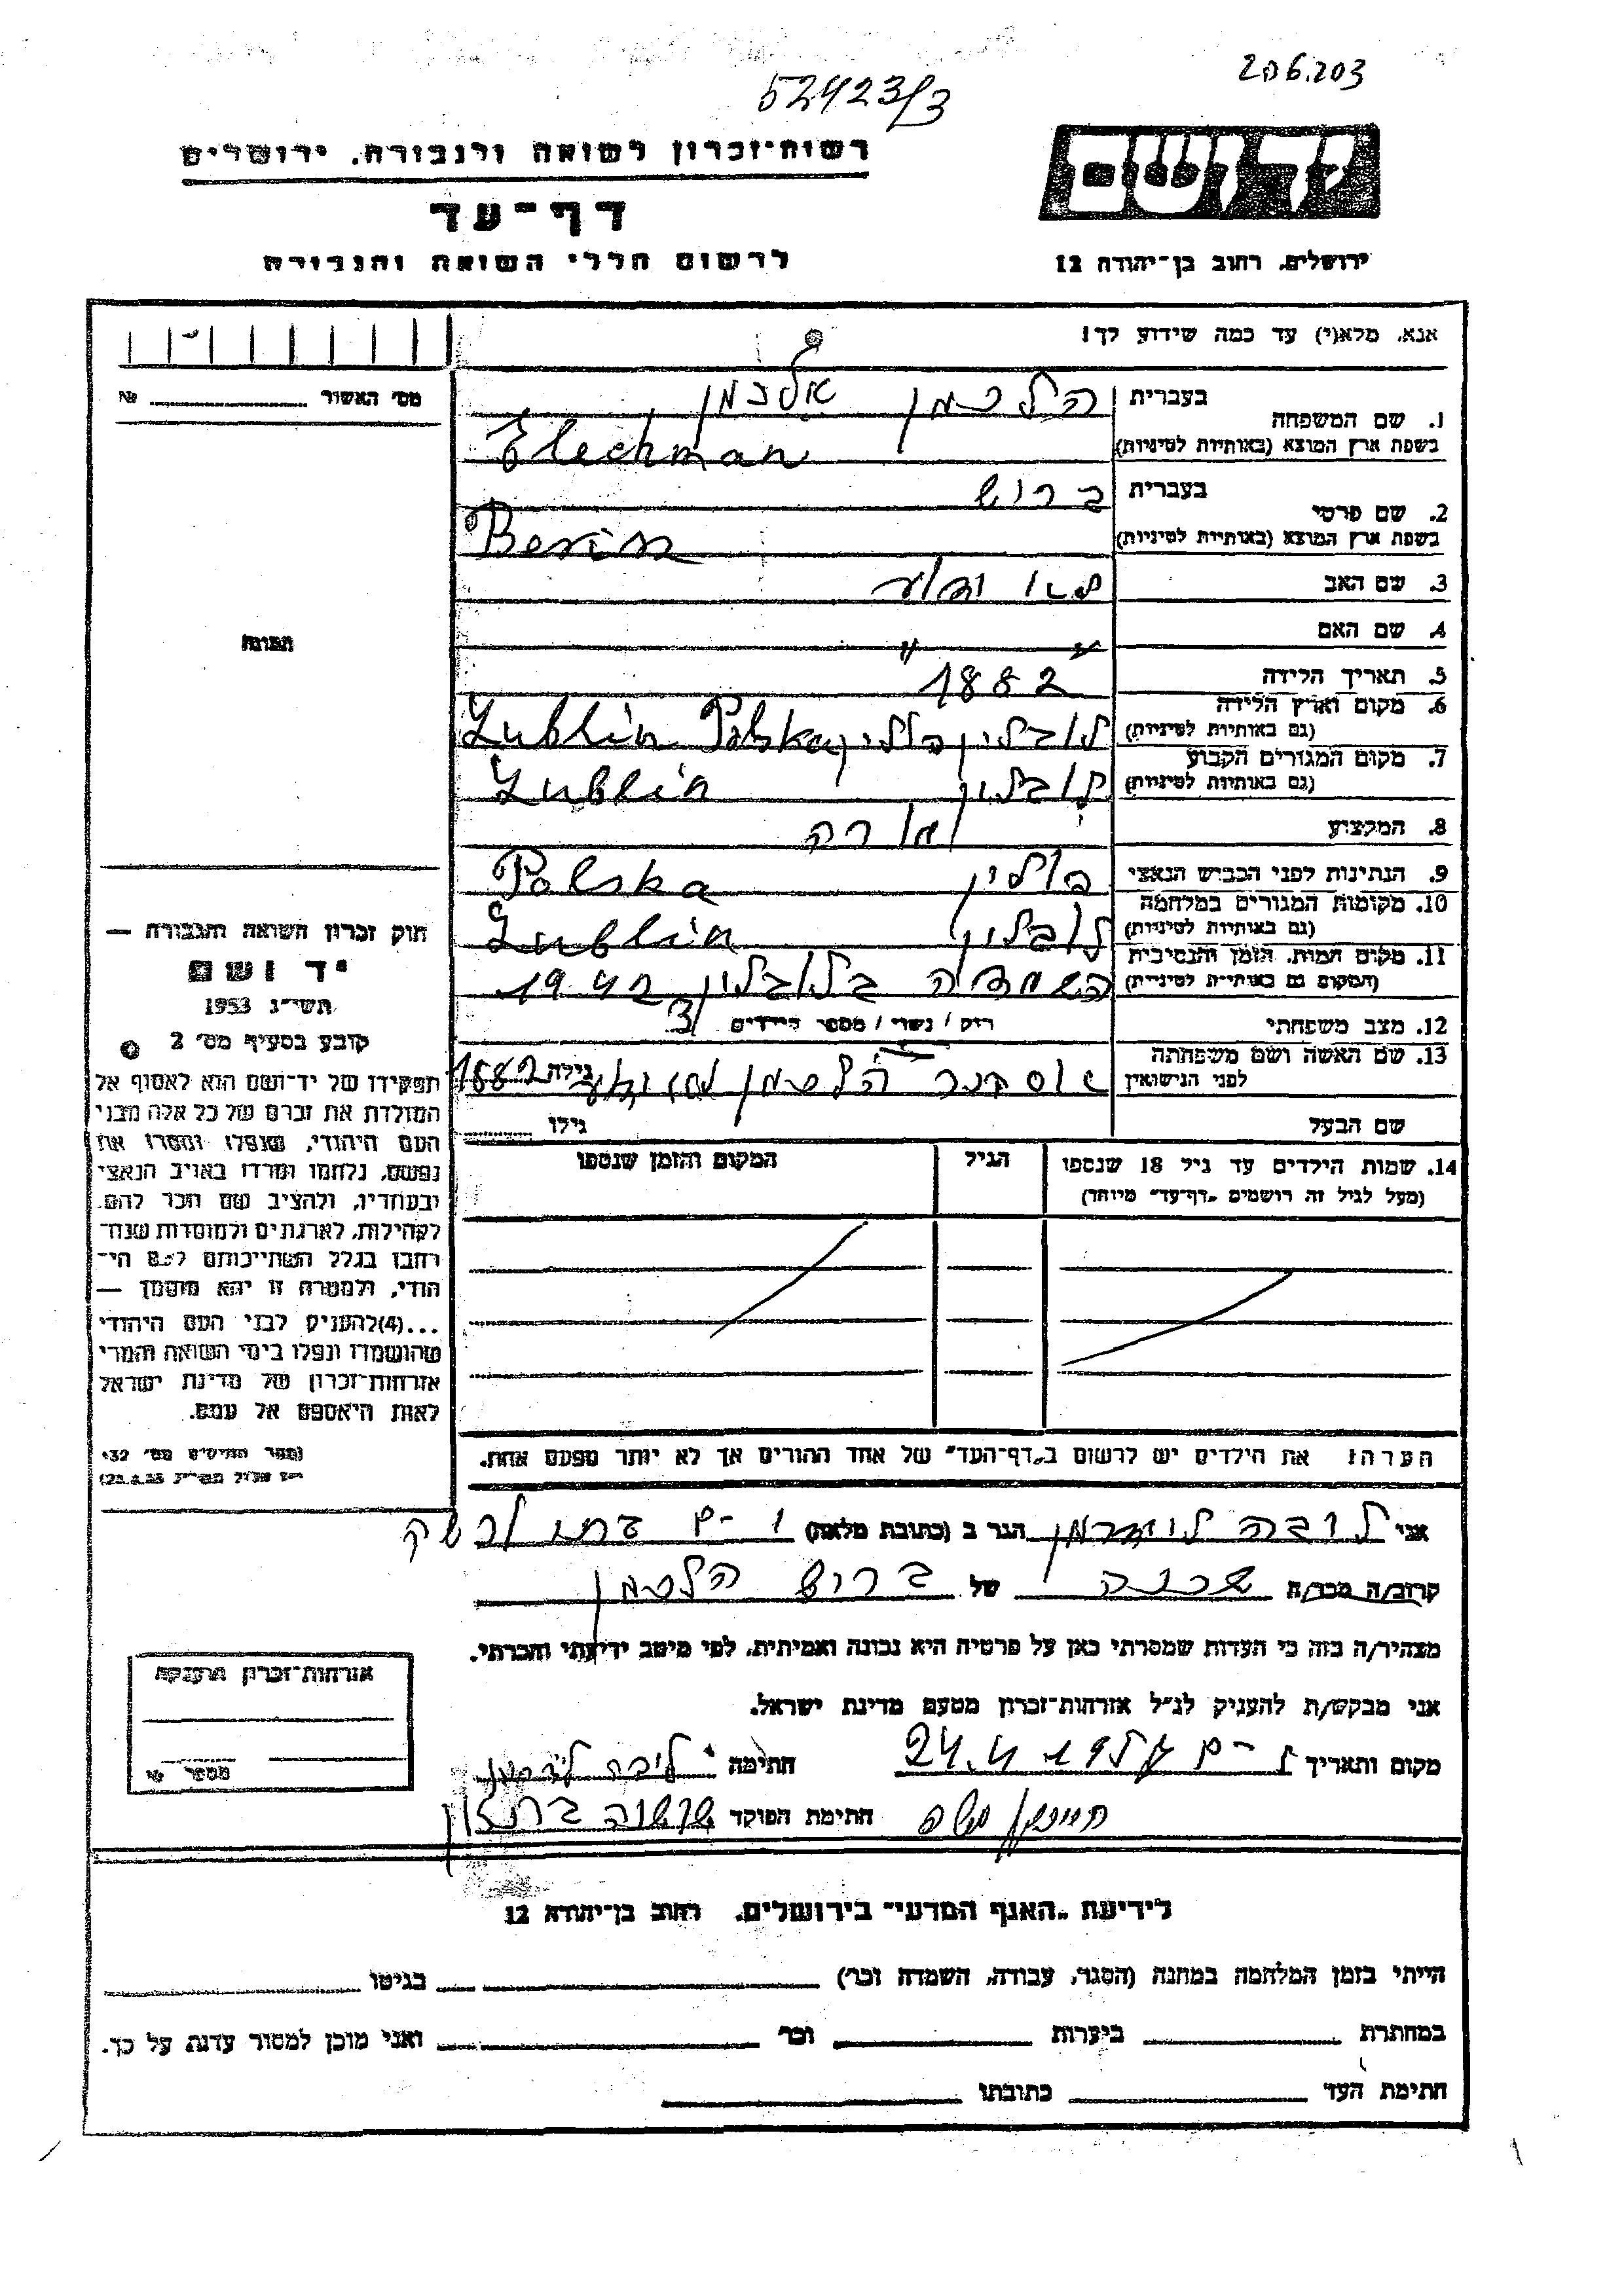 52423/3
206.203
רשות־זכרון לשואה ולגבורה, ירושלים
יד ושם
דף־עד
לרשום חללי השואה והגבורה
ירושלים, רחוב בן־יהודה 12
אנא, מלא(י) עד כמה שידוע לך!
מס' האשור № 
1. שם המשפחה
בעברית הלכמן
בשפת ארץ המוצא (באותיות לטיניות) Elechman
2. שם פרטי
בעברית ברוש
בשפת ארץ המוצא (באותיות לטיניות)
3. שם האב
4. שם האם " "
5. תאריך הלידה 1882
6. מקום וארץ הלידה
(גם באותיות לטיניות) לובלין פולין Lublin Polska
7. מקום המגורים הקבוע
(גם באותיות לטיניות) לובלין Lublin
8. המקצוע
9. הנתינות לפני הכבוש הנאצי פולין Polska
10. מקומות המגורים במלחמה
(גם באותיות לטיניות) לובלין Lublin
11. מקום המות, הזמן והנסיבות
(המקום גם באותיות לטיניות) השמדה בלובלין 1942
12. מצב משפחתי רוק / נשוי / מספר הילדים 3
13. שם האשה ושם משפחתה
לפני הנישואין הלכמן גילה 1882
שם הבעל גילו
14. שמות הילדים עד גיל 18 שנספו
(מעל לגיל זה רושמים "דף־עד" מיוחד)
הגיל
המקום והזמן שנספו
הערה: את הילדים יש לרשום ב"דף־העד" של אחד ההורים אך לא יותר מפעם אחת.
תמונה
חוק זכרון השואה והגבורה —
יד ושם
תשי"ג 1953
קובע בסעיף מס' 2
תפקידו של יד־ושם הוא לאסוף אל
המולדת את זכרם של כל אלה מבני
העם היהודי, שנפלו ומסרו את
נפשם, נלחמו ומרדו באויב הנאצי
ובעוזריו, ולהציב שם וזכר להם,
לקהילות, לארגונים ולמוסדות שנח־
רבו בגלל השתייכותם לעם הי־
הודי, ולמטרה זו יהא מוסמך —
...(4)להעניק לבני העם היהודי
שהושמדו ונפלו בימי השואה והמרי
אזרחות־זכרון של מדינת ישראל
לאות היאספם אל עמם.
(ספר החוקים מס' 132
אני הגר ב (כתובת מלאה)
קרוב/ה מכר/ה שכנה של ברוש הלכמן
מצהיר/ה בזה כי העדות שמסרתי כאן על פרטיה היא נכונה ואמיתית, לפי מיטב ידיעתי והכרתי.
אני מבקש/ת להעניק לנ"ל אזרחות־זכרון מטעם מדינת ישראל.
מקום ותאריך חתימה
חתימת הפוקד
אזרחות־זכרון הוענקה
מספר
לידיעת "האגף המדעי" בירושלים, רחוב בן־יהודה 12
הייתי בזמן המלחמה במחנה (הסגר, עבודה, השמדה וכו') בגיטו
במחתרת ביערות וכו' ואני מוכן למסור עדות על כך.
חתימת העד כתובתו